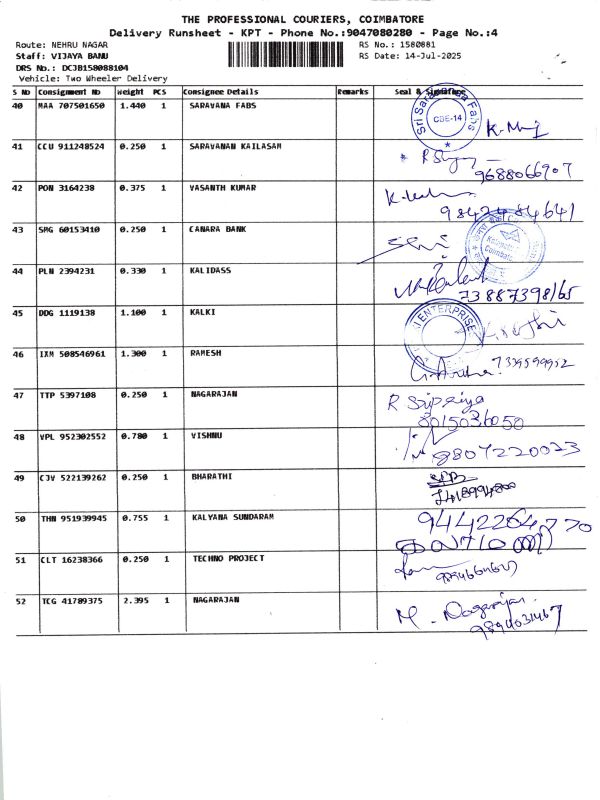 THE PROFESSIONAL COURIERS, COIMBATORE
Delivery Runsheet - KPT - Phone No.:9047080280 - Page No.:4
Route: NEHRU NAGAR RS No.: 1580881
Staff: VIJAYA BANU RS Date: 14-Jul-2025
DRS No.: DCJB158088104
Vehicle: Two Wheeler Delivery
S No Consignment No Weight PCS Consignee Details Remarks Seal & Signature
40 MAA 707501650 1.440 1 SARAVANA FABS CBE-14
41 CCU 911248524 0.250 1 SARAVANAN KAILASAM
9688066907
42 PON 3164238 0.375 1 VASANTH KUMAR
9842484641
43 SMG 60153410 0.250 1 CANARA BANK
44 PLN 2394231 0.330 1 KALIDASS
7388739865
45 DDG 1119138 1.100 1 KALKI ENTERPRISE
46 IXM 508546961 1.300 1 RAMESH 7339599952
47 TTP 5397108 0.250 1 NAGARAJAN R Sripriya
8015036050
48 VPL 952302552 0.780 1 VISHNU
9807220023
49 CJV 522139262 0.250 1 BHARATHI
50 THN 951939945 0.755 1 KALYANA SUNDARAM 9442264770
51 CLT 16238366 0.250 1 TECHNO PROJECT
52 TCG 41789375 2.395 1 NAGARAJAN M. Nagarajan
9894031467